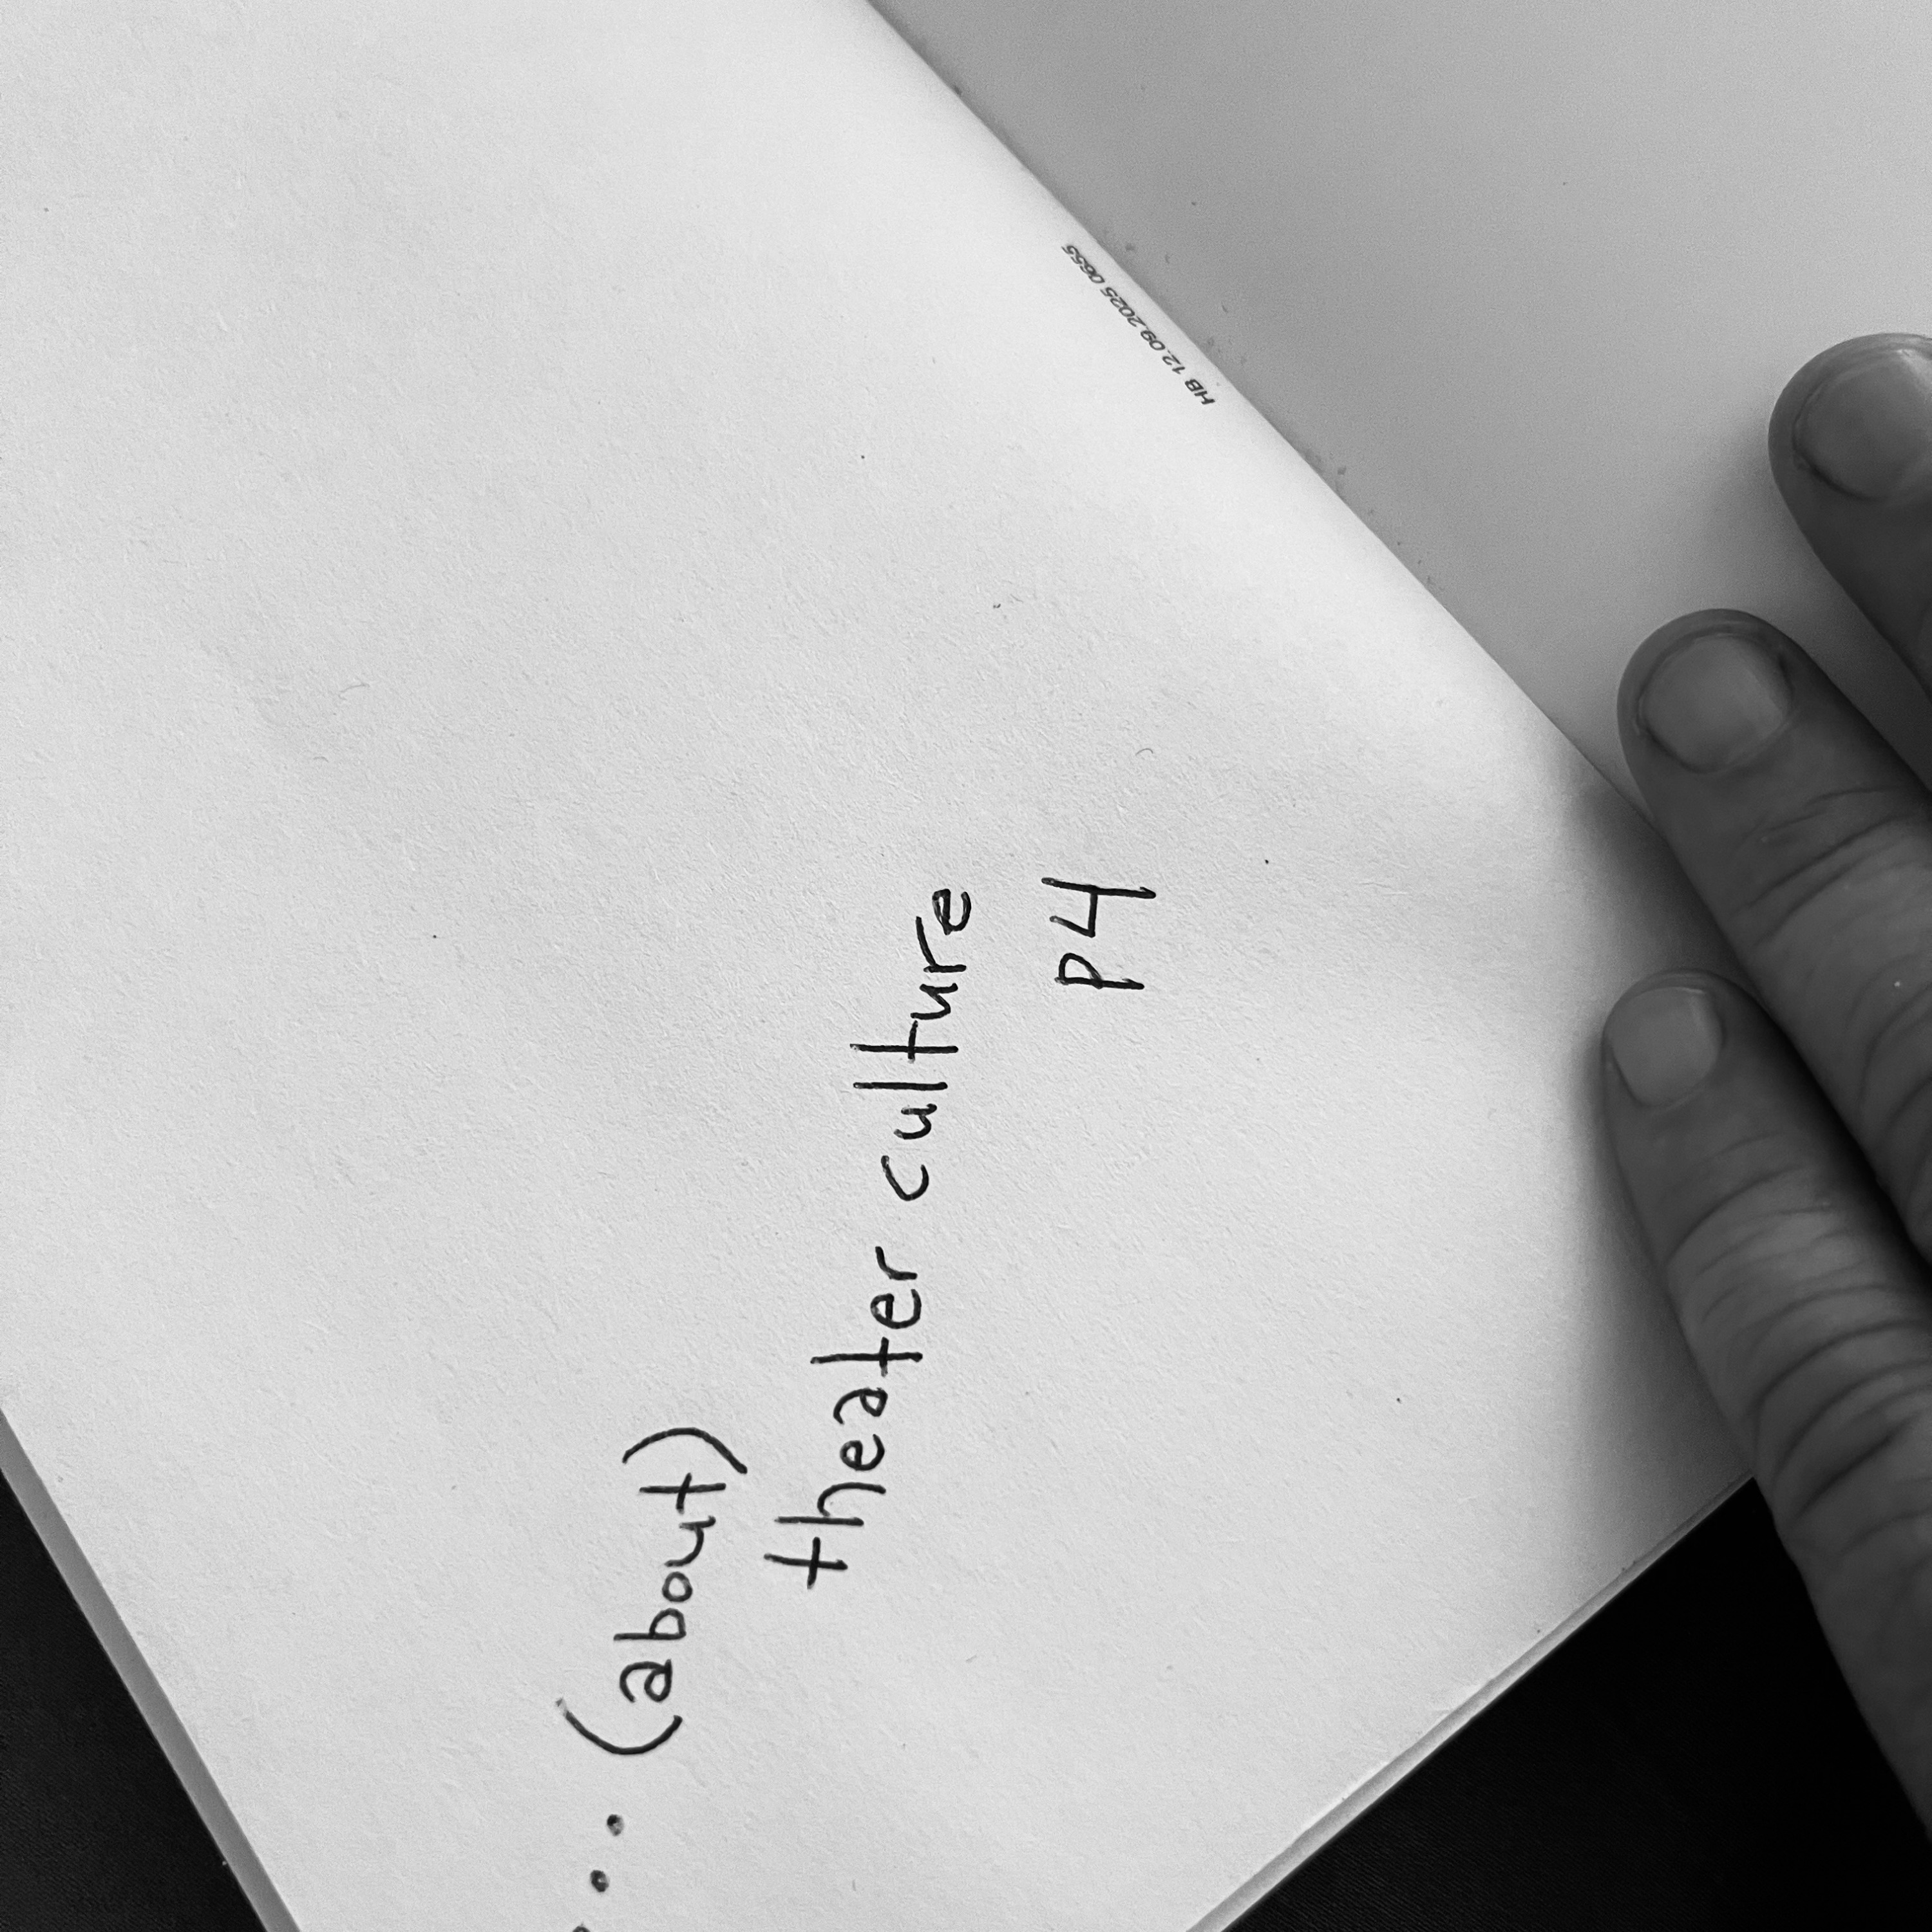 ... (about)
theater culture
p4
HB 12.09.2025 0655